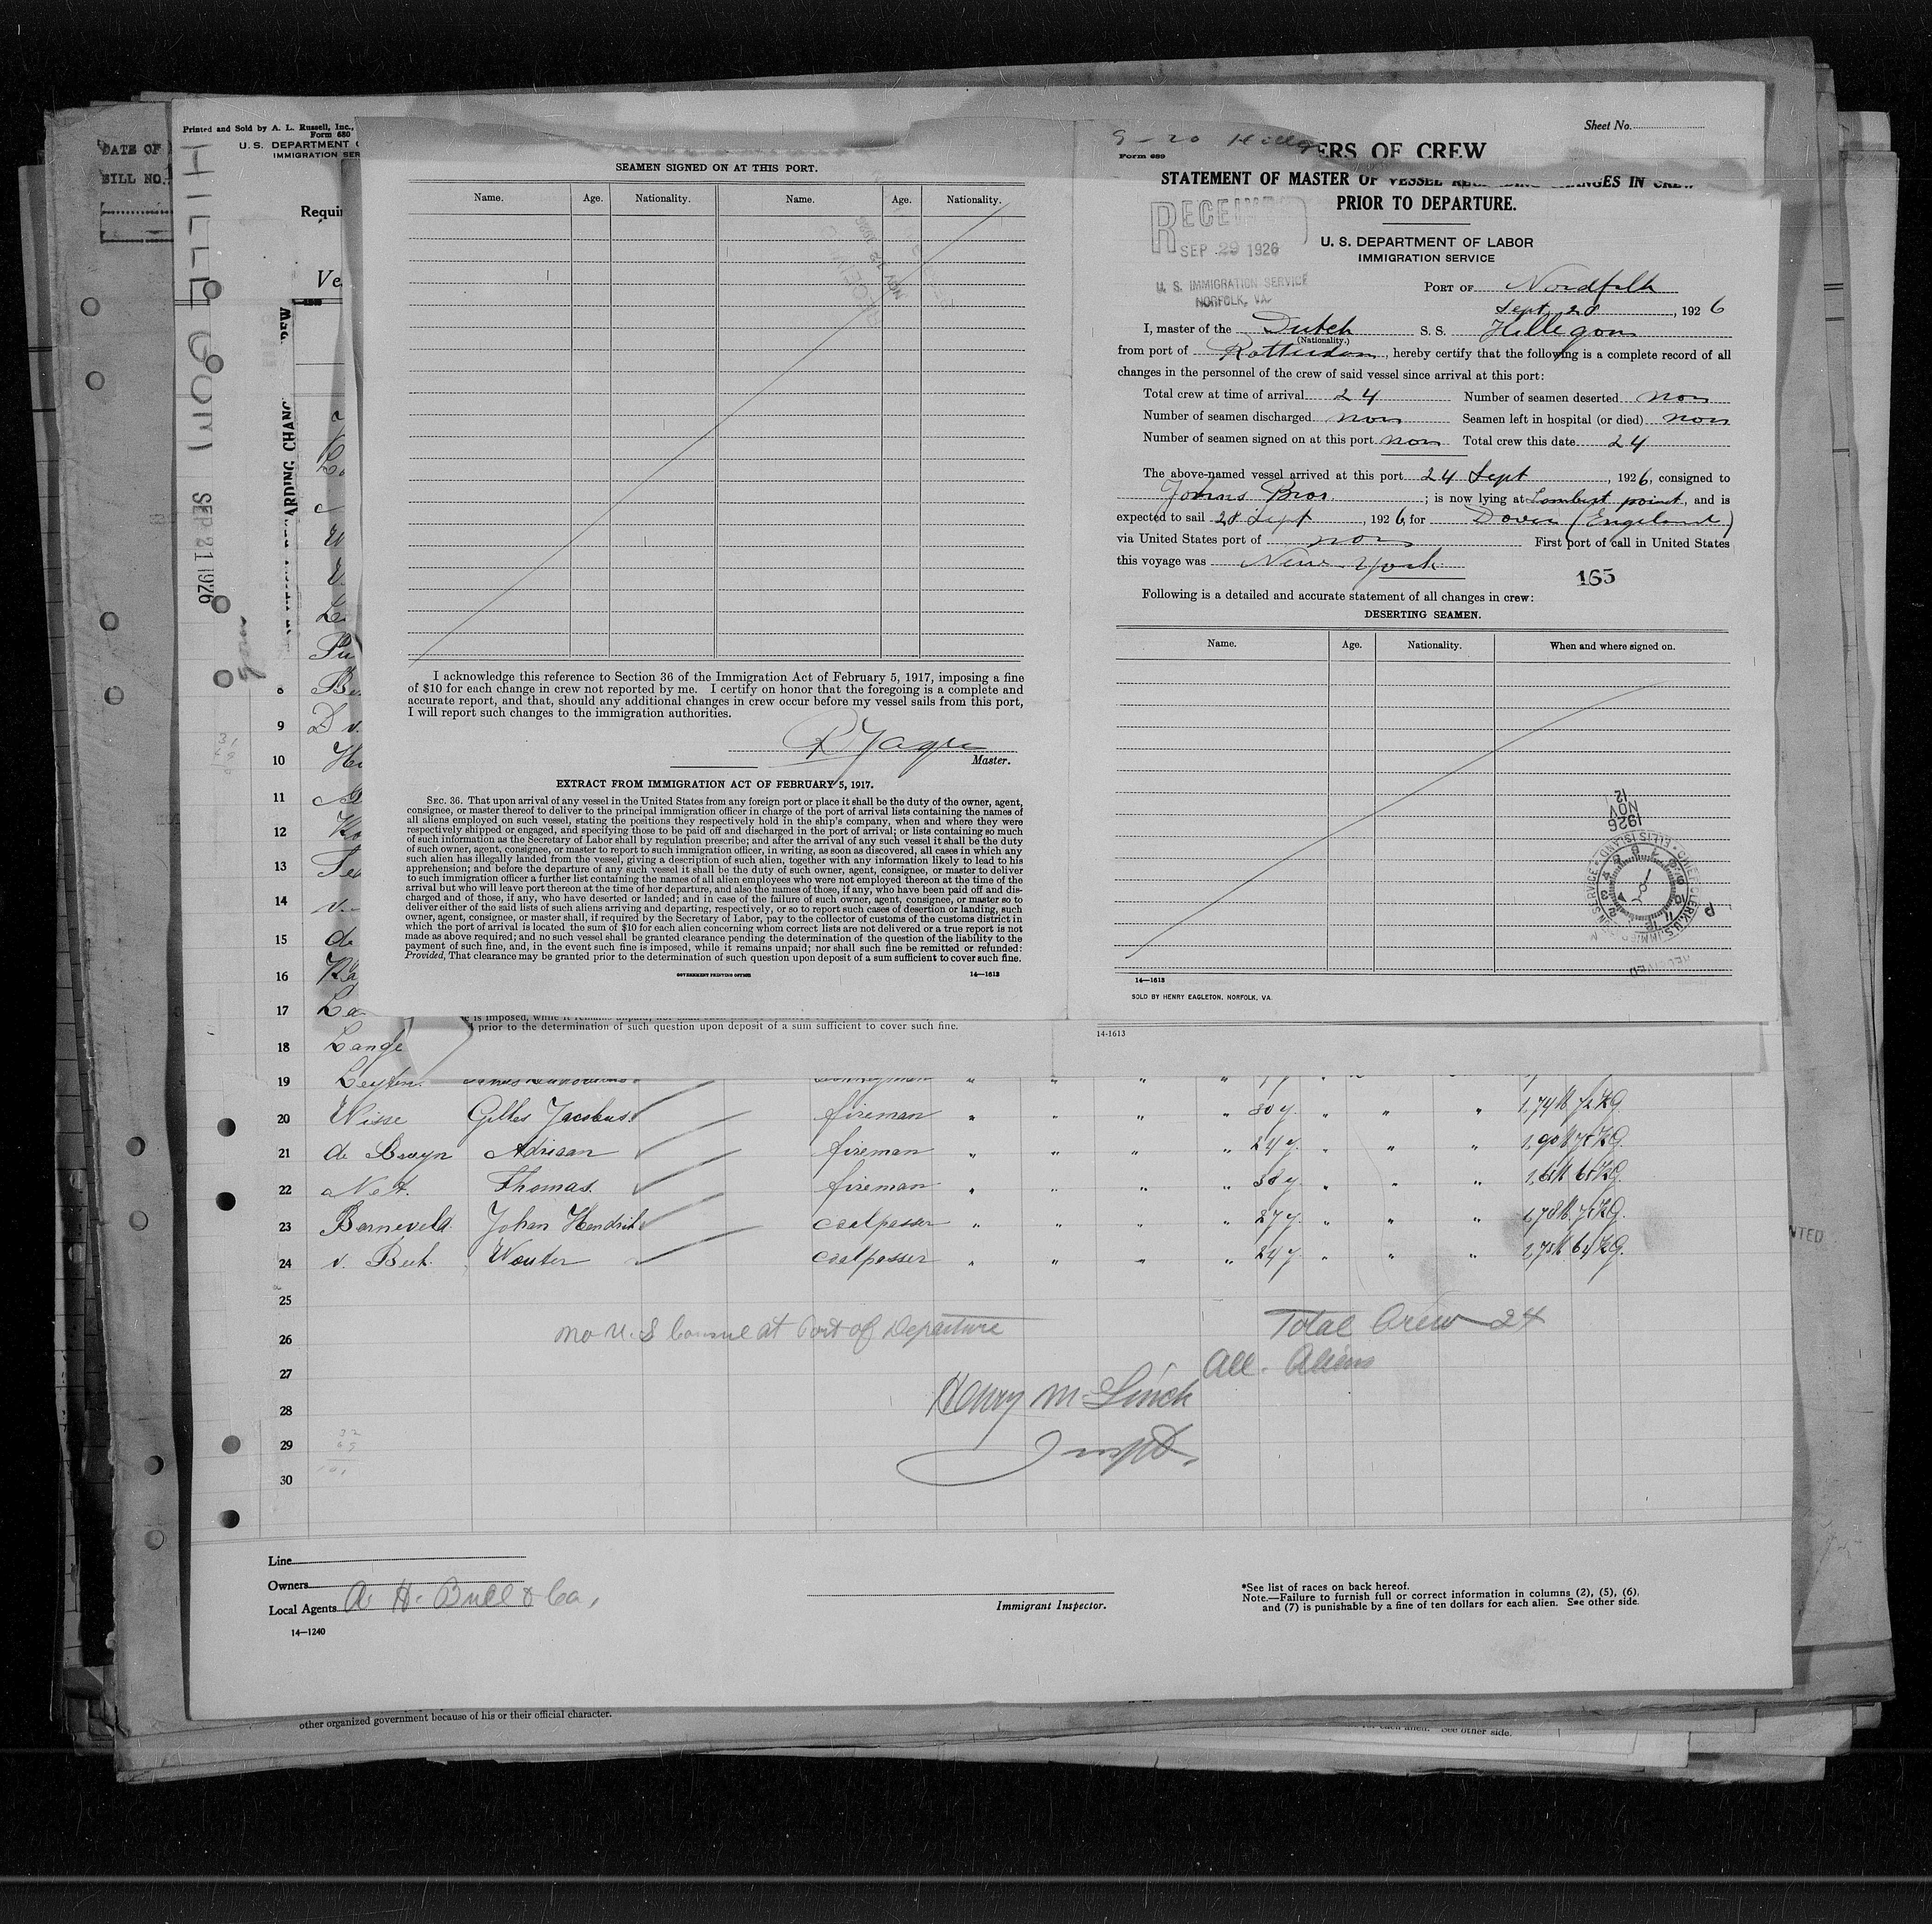 Printed and Sold by A. L. Russell, Inc.,
Form 680
U. S. DEPARTMENT
IMMIGRATION SER
DATE OF
BILL NO.
HILLEGOM
SEP 21 1926
Requir
Ve
ARDING CHANG
SEAMEN SIGNED ON AT THIS PORT.
Name. Age. Nationality. Name. Age. Nationality.
I acknowledge this reference to Section 36 of the Immigration Act of February 5, 1917, imposing a fine
of $10 for each change in crew not reported by me. I certify on honor that the foregoing is a complete and
accurate report, and that, should any additional changes in crew occur before my vessel sails from this port,
I will report such changes to the immigration authorities.
Master.
EXTRACT FROM IMMIGRATION ACT OF FEBRUARY 5, 1917.
SEC. 36. That upon arrival of any vessel in the United States from any foreign port or place it shall be the duty of the owner, agent,
consignee, or master thereof to deliver to the principal immigration officer in charge of the port of arrival lists containing the names of
all aliens employed on such vessel, stating the positions they respectively hold in the ship's company, when and where they were
respectively shipped or engaged, and specifying those to be paid off and discharged in the port of arrival; or lists containing so much
of such information as the Secretary of Labor shall by regulation prescribe; and after the arrival of any such vessel it shall be the duty
of such owner, agent, consignee, or master to report to such immigration officer, in writing, as soon as discovered, all cases in which any
such alien has illegally landed from the vessel, giving a description of such alien, together with any information likely to lead to his
apprehension; and before the departure of any such vessel it shall be the duty of such owner, agent, consignee, or master to deliver
to such immigration officer a further list containing the names of all alien employees who were not employed thereon at the time of the
arrival but who will leave port thereon at the time of her departure, and also the names of those, if any, who have been paid off and dis-
charged and of those, if any, who have deserted or landed; and in case of the failure of such owner, agent, consignee, or master so to
deliver either of the said lists of such aliens arriving and departing, respectively, or so to report such cases of desertion or landing, such
owner, agent, consignee, or master shall, if required by the Secretary of Labor, pay to the collector of customs of the customs district in
which the port of arrival is located the sum of $10 for each alien concerning whom correct lists are not delivered or a true report is not
made as above required; and no such vessel shall be granted clearance pending the determination of the question of the liability to the
payment of such fine, and, in the event such fine is imposed, while it remains unpaid; nor shall such fine be remitted or refunded:
Provided, That clearance may be granted prior to the determination of such question upon deposit of a sum sufficient to cover such fine.
GOVERNMENT PRINTING OFFICE 14—1613
Sheet No.
ERS OF CREW
Form 689
STATEMENT OF MASTER OF VESSEL REGARDING CHANGES IN CREW
PRIOR TO DEPARTURE.
RECEIVED
SEP 29 1926
U. S. IMMIGRATION SERVICE
NORFOLK, VA.
U. S. DEPARTMENT OF LABOR
IMMIGRATION SERVICE
PORT OF Nordfolk
Sept 28, 1926
I, master of the Dutch S. S. Hillegom
(Nationality.)
from port of Rotterdam, hereby certify that the following is a complete record of all
changes in the personnel of the crew of said vessel since arrival at this port:
Total crew at time of arrival 24 Number of seamen deserted non
Number of seamen discharged non Seamen left in hospital (or died) non
Number of seamen signed on at this port non Total crew this date 24
The above-named vessel arrived at this port 24 Sept, 1926, consigned to
Bros.; is now lying at Lambert point, and is
expected to sail 28 Sept, 1926, for Dover (Engeland)
via United States port of non First port of call in United States
this voyage was New York
165
Following is a detailed and accurate statement of all changes in crew:
DESERTING SEAMEN.
Name. Age. Nationality. When and where signed on.
12 NOV 1926
ELLIS ISLAND
14—1613
SOLD BY HENRY EAGLETON, NORFOLK, VA.
8
9
10
11
12
13
14
15
16
17
e is imposed, while it remains unpaid, nor shall
prior to the determination of such question upon deposit of a sum sufficient to cover such fine.
14-1613
18 Lange
19 Leyten
20 Wisse Gilles Jacobus fireman " " " " 30 y. " " " 1,74 M 72 KG.
21 de Bruyn Adriaan fireman " " " " 24 y. " " "
22 Net Thomas. fireman " " " " 38 y. " " "
23 Barneveld Johan Hendrik coalpasser " " " " 27 y. " " "
24 v. Wouter coalpasser " " " " 24 y. " " "
25
26
27
28
29
30
no U.S Consul at Port of Departure
Total Crew 24
All Aliens
Henry M Linck
Inspt.
Line
Owners
Local Agents A. H. Bull & Co,
14—1240
Immigrant Inspector.
*See list of races on back hereof.
Note.—Failure to furnish full or correct information in columns (2), (5), (6),
and (7) is punishable by a fine of ten dollars for each alien. See other side.
other organized government because of his or their official character.
for each alien. See other side.